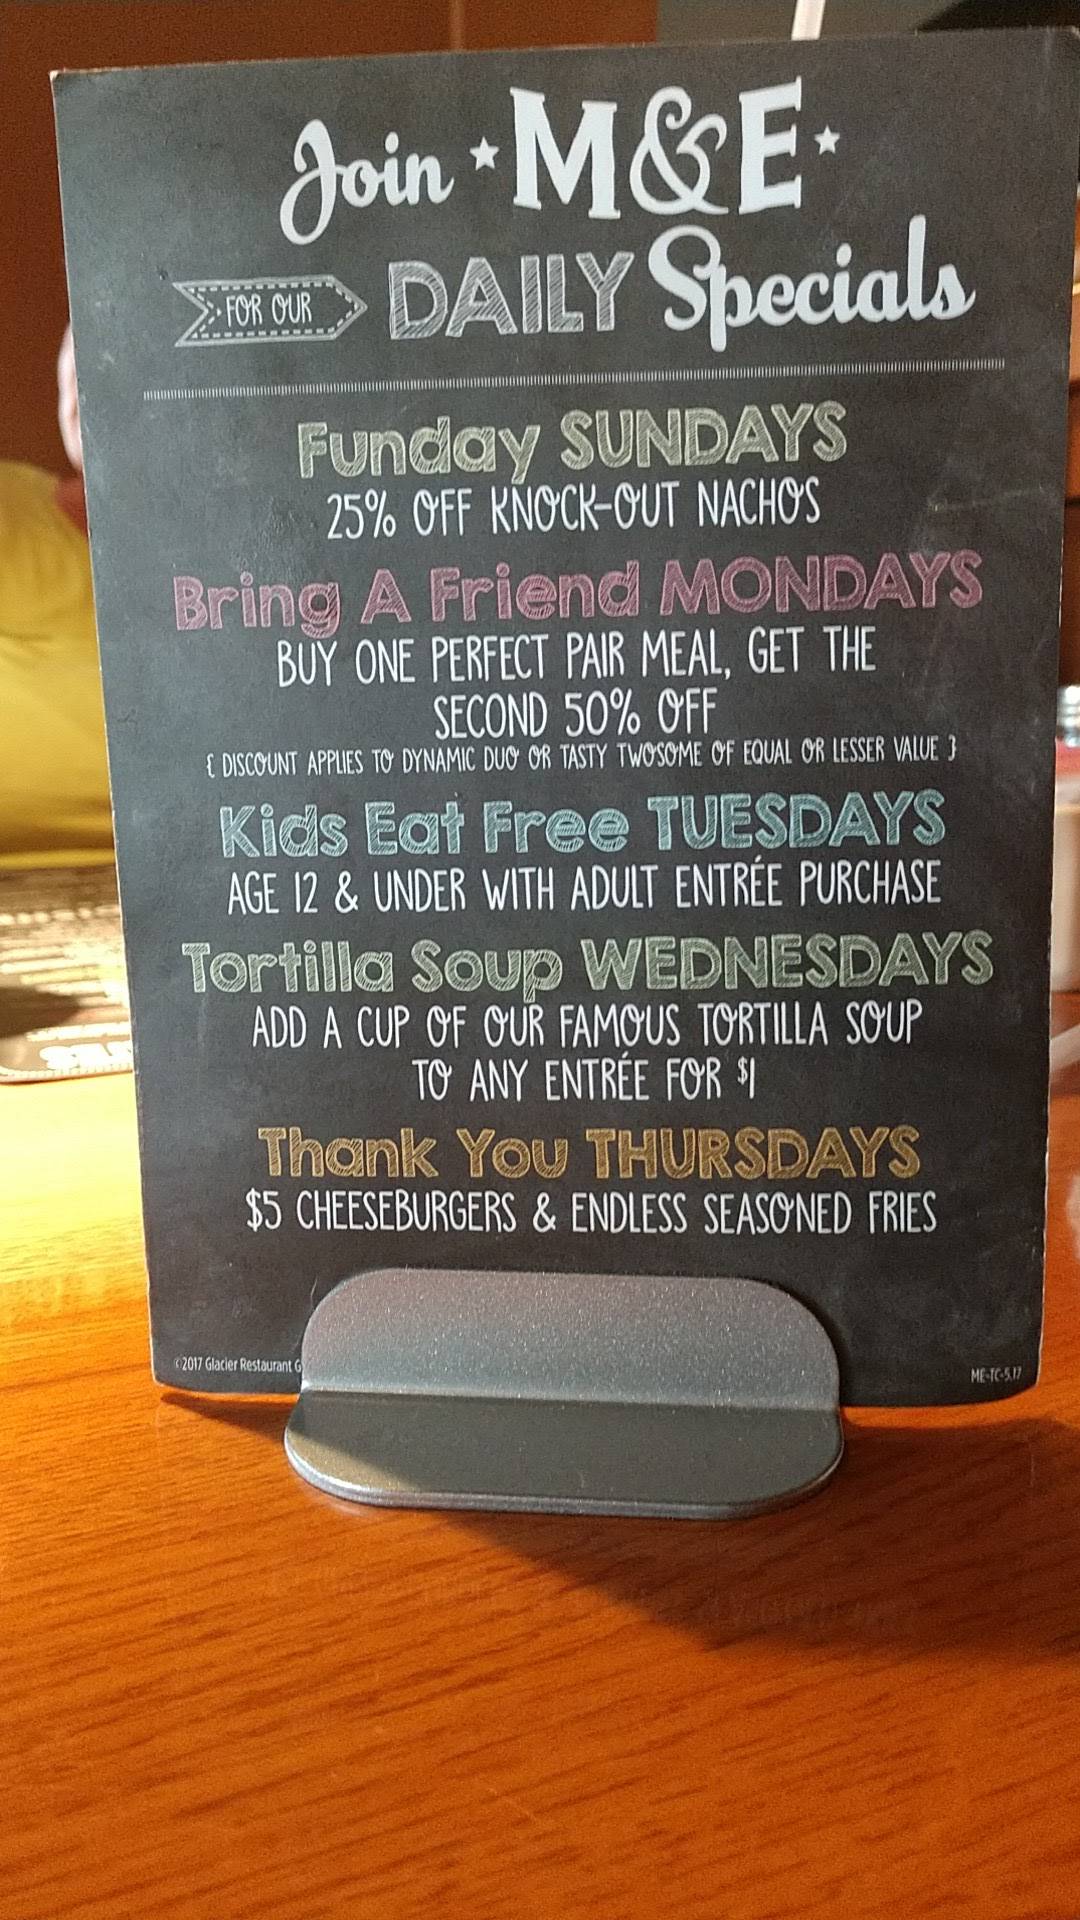 Join ★ M&E ★
FOR OUR DAILY Specials
Funday SUNDAYS
25% OFF KNOCK-OUT NACHOS
Bring A Friend MONDAYS
BUY ONE PERFECT PAIR MEAL, GET THE
SECOND 50% OFF
{ DISCOUNT APPLIES TO DYNAMIC DUO OR TASTY TWOSOME OF EQUAL OR LESSER VALUE }
Kids Eat Free TUESDAYS
AGE 12 & UNDER WITH ADULT ENTRÉE PURCHASE
Tortilla Soup WEDNESDAYS
ADD A CUP OF OUR FAMOUS TORTILLA SOUP
TO ANY ENTRÉE FOR $1
Thank You THURSDAYS
$5 CHEESEBURGERS & ENDLESS SEASONED FRIES
©2017 Glacier Restaurant G
ME-TC-5.17